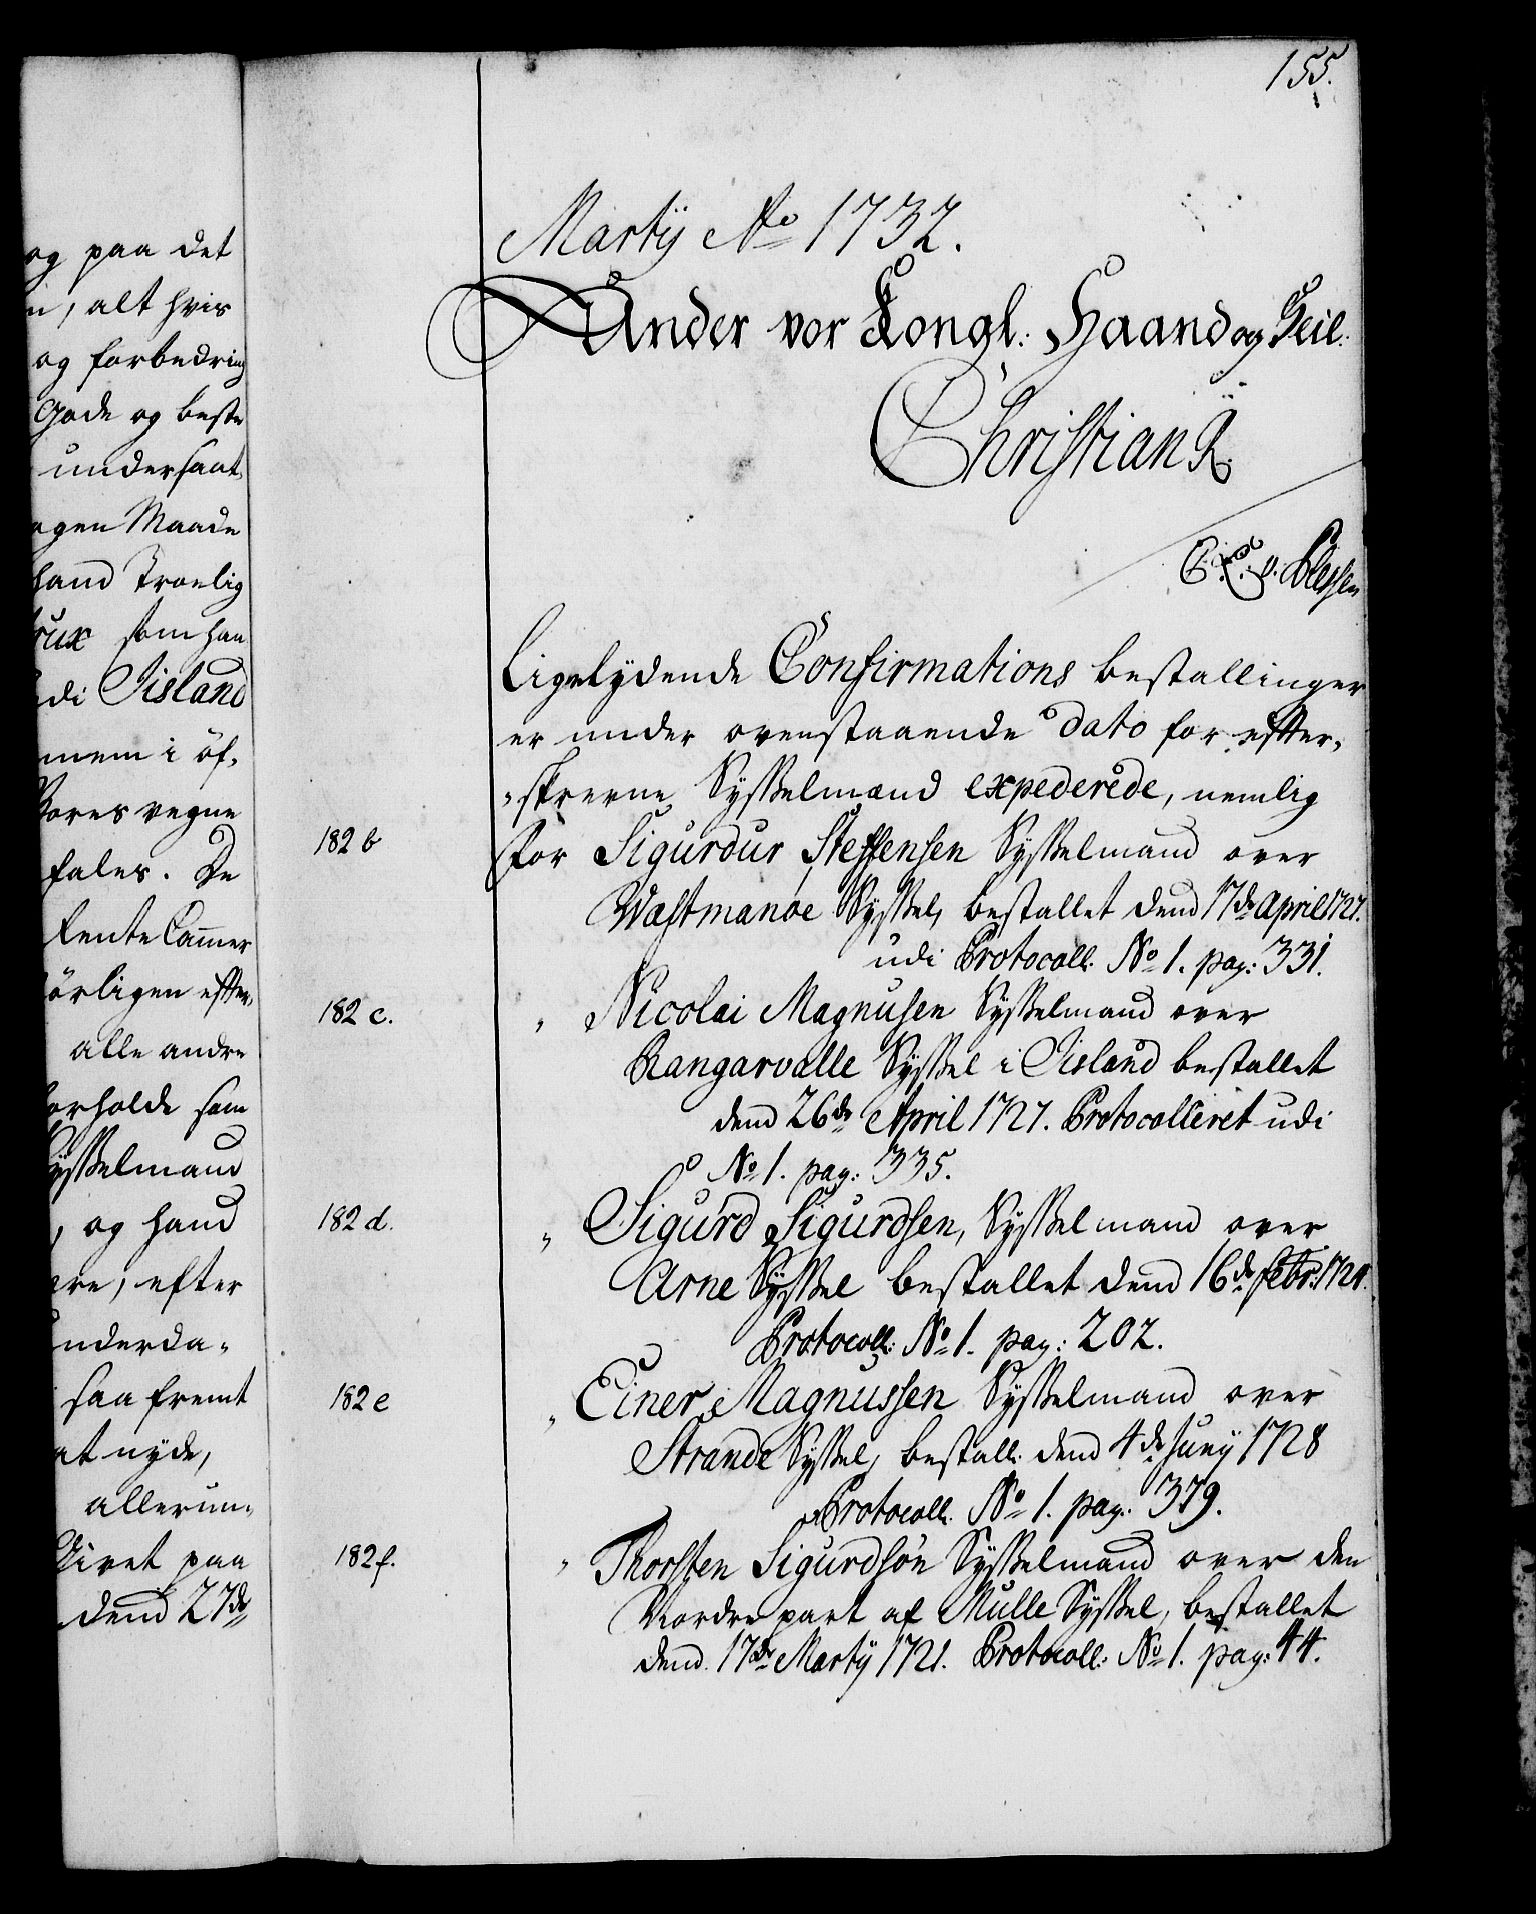 155.
og paa det
, alt hvis
og forbedring
Gode og beste
undersaat
ogen Maade
hand Troelig
som haa
di Iisland
mem i öf-
Vores vegne
fales. De
Rente Cammer
örligen efter,
alle andre
forholde som
Sysselmand
, og hand
ere, efter
underda-
saa fremt
at nyde,
allerun-
Givet paa
dend 27de
Martij Ao 1732.
Under vor Kongl: Haand og Seil:
Christian R.
C: A: v: Plessen
Ligelydende Confirmations bestallinger
er under ovenstaaende dato for efter-
-skrevne Sysselmænd expederede, nemlig
182 b
for Sigurdur Steffensen Sysselmand over
Wæstmanøe Syssel, bestallet dend 17de April 1727.
udi Protocoll: No 1. pag: 331.
182 c.
" Nicolai Magnusen Sysselmand over
Rangarvalle Syssel i Iisland bestallet
dend 26de April 1727. Protocolleret udi
No 1. pag: 335.
182 d.
" Sigurd Sigurdsen, Sysselmand over
Arne Syssel bestallet dend 16de Febr: 1724.
Protocoll: No 1. pag: 202.
182 e
" Einer Magnussen Sysselmand over
Strande Syssel, bestall: dend 4de Junij 1728
Protocoll: No 1. pag: 379.
182 f.
" Thorsten Sigurdsøn Sysselmand over den
Nordre part af Mulle Syssel, bestallet
dend. 17de Martij 1721. Protocoll: No 1. pag: 44.